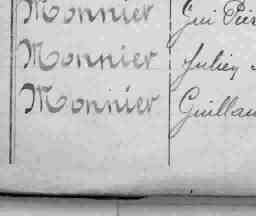 Monnier Gui Pier
Monnier Julien
Monnier Guillau